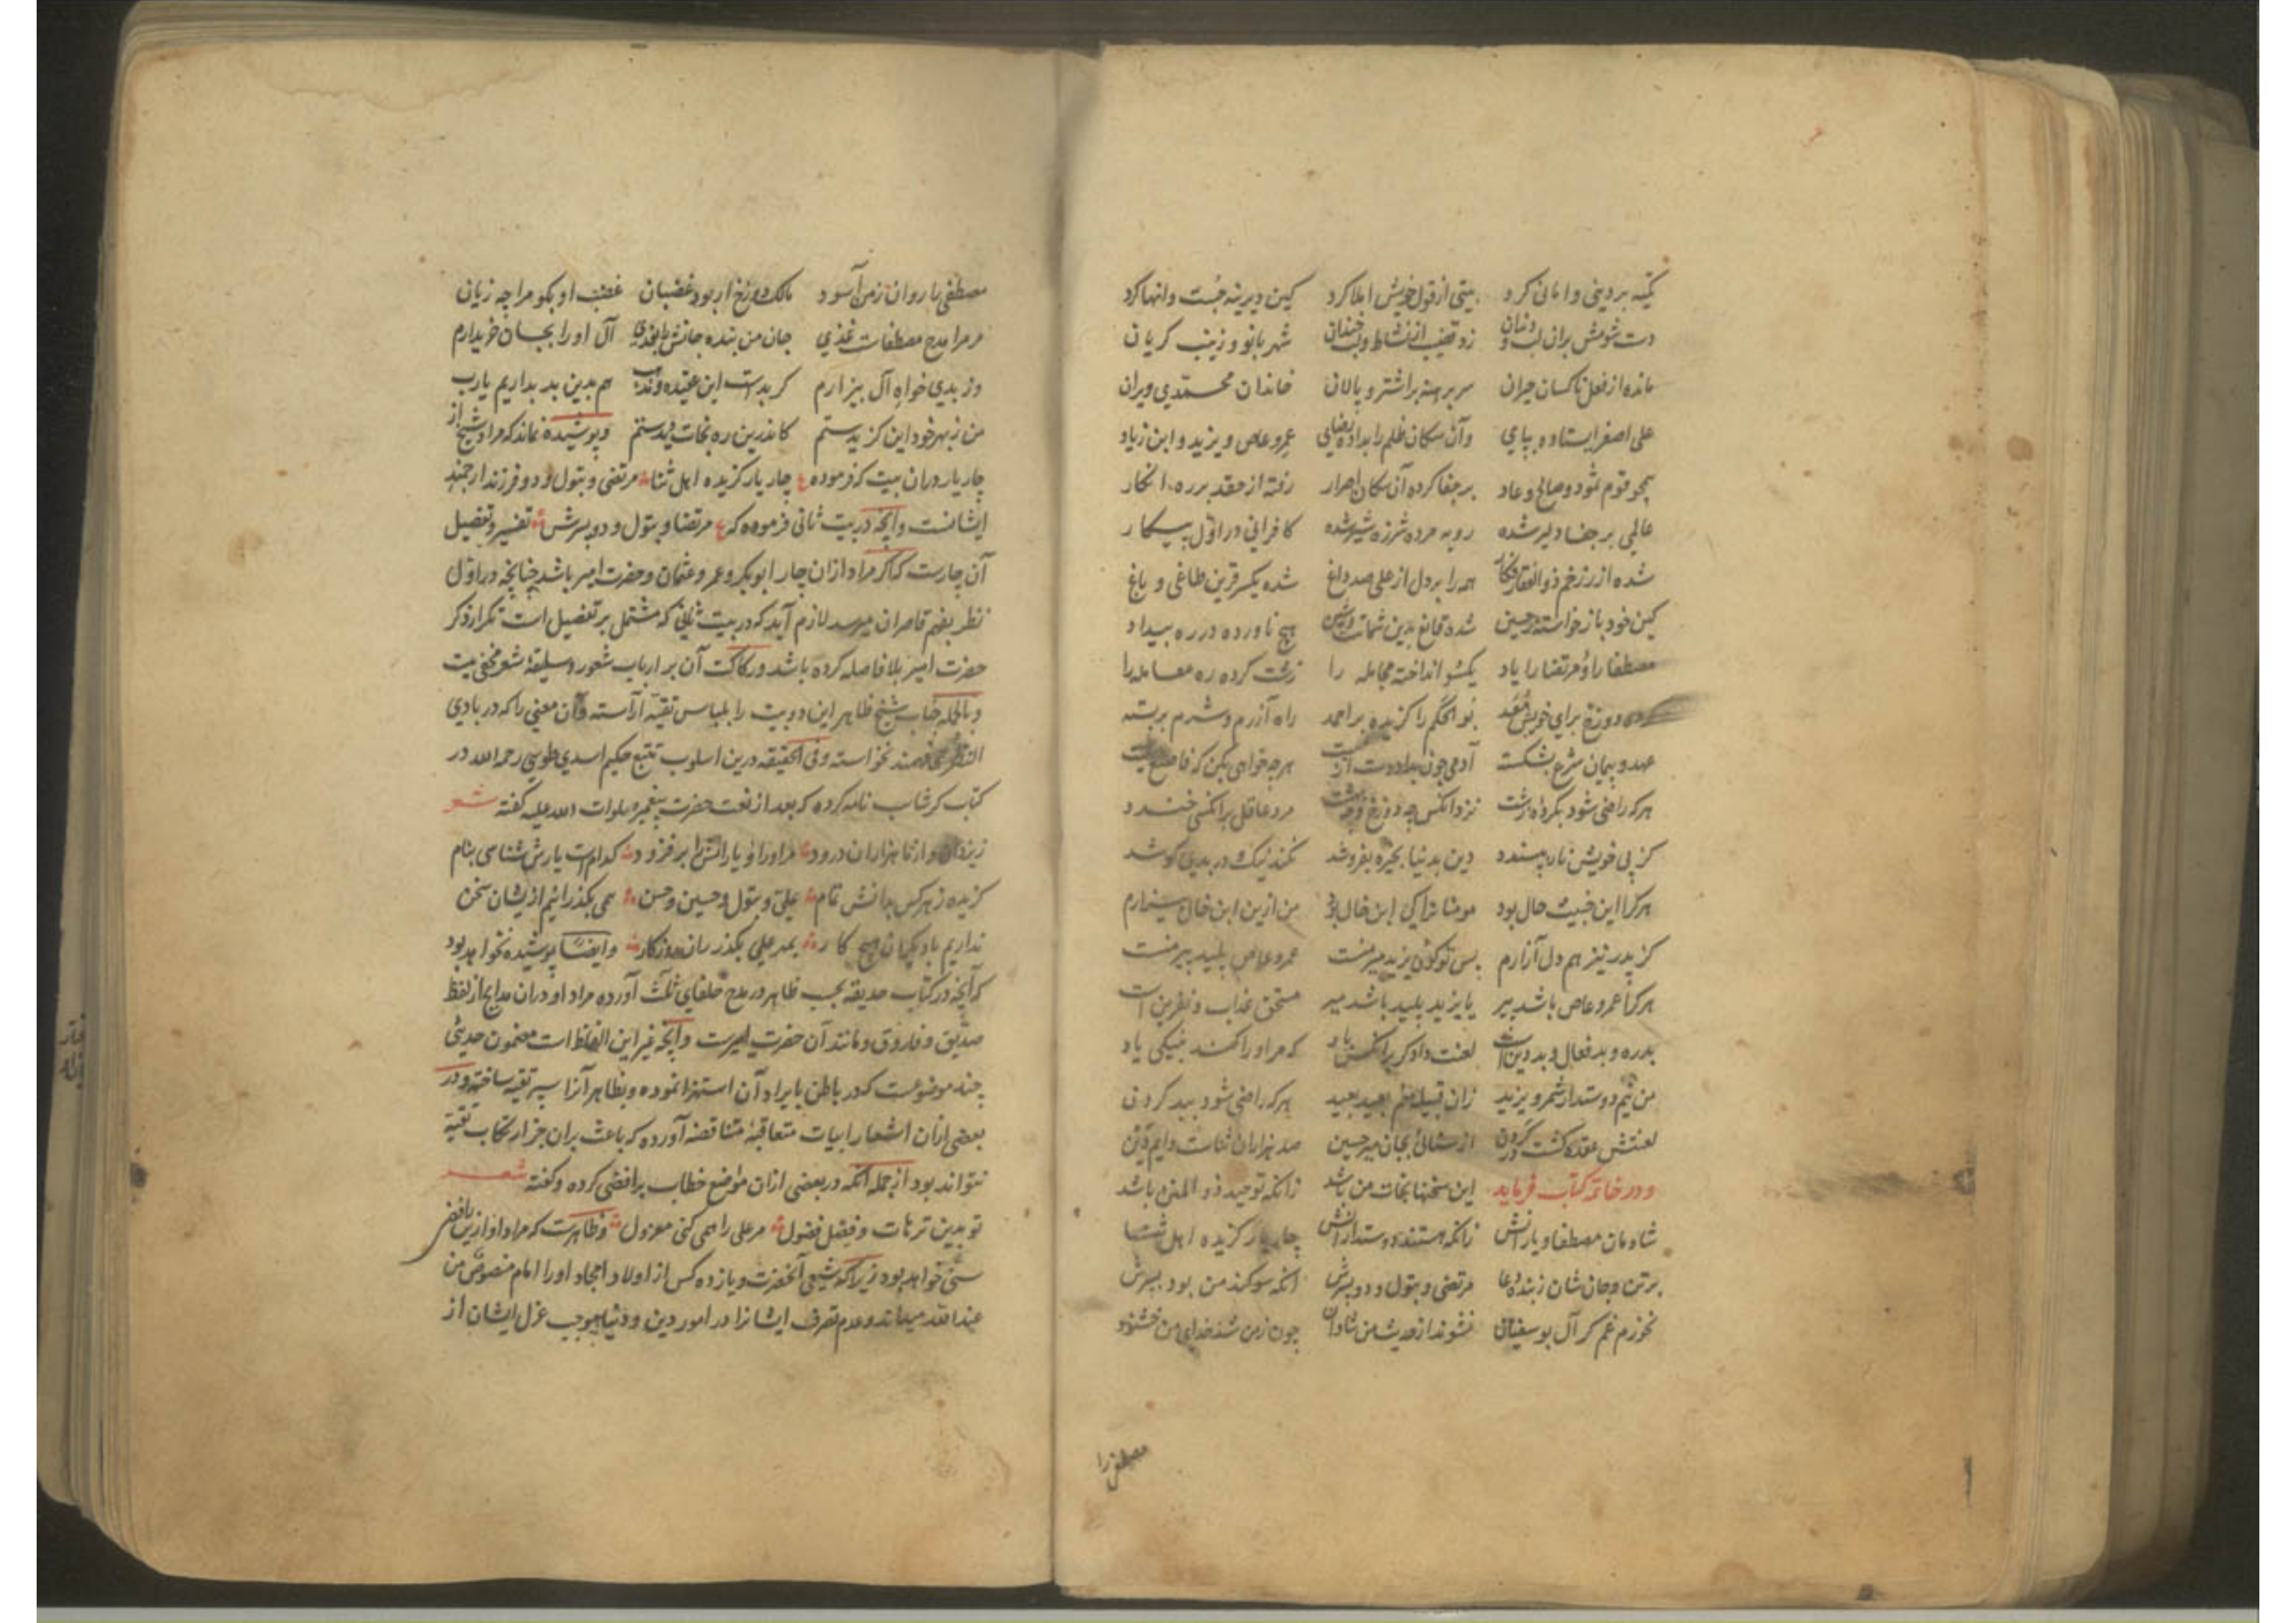 تکیه بر دینی و امانی کرد بیتی از قول خویش املا کرد کین دیرینه جست و انها کرد
دست شومش بران لب و دندان زد قضیب از نشاط و لب خندان شهربانو و زینب گریان
مانده از فعل ناکسان حیران سر برهنه بر اشتر و پالان خاندان محمدی ویران
علی اصغر ایستاده بپای وآن سگان ظلم را بداده رضای عمرو عاص و یزید و ابن زیاد
همچو قوم ثمود و صالح و عاد بر جفا کرده آن سگان اصرار رفته از حقد بر ره انکار
عالمی بر جفا دلیر شده روبه مرده شرزه شیر شده کافرانی در اول پیکار
شده از زخم ذوالفقار فکار همه را بر دل از علی صد داغ شده یکسر قرین طاغی و باغ
کین خود باز خواسته ز حسین شده قانع بدین شماتت و شین هیچ ناورده در ره بیداد
مصطفا را و مرتضا را یاد یکسو انداخته مجامله را زشت کرده ره معامله را
کرده دوزخ برای خویش معد بو الحکم را گزیده بر احمد راه آزرم و شرم بربسته
عهد و پیمان شرع بشکسته آدمی چون بداد دست از هرچه خواهی بکن که فاصنع شیت
هرکه راضی شود بکرده زشت نزد آنکس چه دوزخ و چه بهشت مرد عاقل بر آنکسی خندد
کز پی خویش نار پسندد دین بدنیا بخیره بفروشد نکند نیک در بدی کوشد
هرکرا این خبیث خال بود مومنان را کی ابن خال بود من ازین ابن خال بیزارم
کز پدر نیز هم دل آزارم پس تو گوئی یزید میر منست عمرو عاص پلید پیر منست
هرکرا عمرو عاص باشد پیر یا یزید پلید باشد میر مستحق عذاب و نفرین است
بدره و بد فعال و بد دین است لعنت دادگر بر آنکس باد که مر او را کند بنیکی یاد
من نیم دوستدار شمر و یزید زان قبیله منم بعید بعید هرکه راضی شود ببد کردن
لعنتش عقده گشت در گردن از سنائی بجان میر حسین صد هزاران ثناست دایم دین
و در خاتمه کتاب فرماید این سخنها نجات من باشد زانکه توحید ذو المنن باشد
شادمان مصطفا و یارانش زانکه هستند دوستدارانش چار یار گزیده اهل ثنا
برتن و جان شان ز بنده دعا مرتضی و بتول و دو پسرش آنکه سوگند من بود بسرش
نخورم غم گر آل بوسفیان نشوند از حدیث من شادان چون ز من شد خدای من خشنود
مصطفی را
مصطفی را روان ز من آسود مالک دوزخ ار بود غضبان غضب او بگو مرا چه زیان
مر مرا مدح مصطفاست غذی جان من بنده جانش را بفدی آل او را بجان خریدارم
وز بدی خواه آل بیزارم گر بدست این عقیده و مذهب هم بدین بد بداریم یارب
من ز بهر خود این گزیدستم کاندرین ره نجات دیدستم و پوشیده نماند که مراد شیخ از
چار یار دران بیت که فرموده ع چار یار گزیده اهل ثنا مرتضی و بتول و دو فرزند ارجمند
ایشانست و آنچه در بیت ثانی فرموده که ع مرتضا و بتول و دو پسرش تفسیر و تفصیل
آن چارست که اگر مراد ازان چار ابوبکر و عمر و عثمان و حضرت امیر باشد چنانچه در اول
نظر بفهم قاصران میرسد لازم آید که در بیت ثانی که مشتمل بر تفصیل است تکرار ذکر
حضرت امیر بلافاصله کرده باشد و رکاکت آن بر ارباب شعور و سلیقه شعر مخفی نیست
و بالجمله جناب شیخ ظاهر این دو بیت را بلباس تقیه آراسته و آن معنی را که در بادی
النظر می فهمند نخواسته و فی الحقیقه درین اسلوب تتبع حکیم اسدی طوسی رحمه الله در
کتاب کرشاسب نامه کرده که بعد از نعت حضرت پیغمبر صلوات الله علیه گفته شعر
ز یزدان و از ما هزاران درود مر او را و یارانش را بر فزود کدامست یارش شناسی بنام
گزیده ز هر کس بدانش تمام علی و بتول و حسین و حسن همی بگذرانیم ازیشان سخن
نداریم با دیگران هیچ کار بمهر علی بگذران روزگار و ایضا پوشیده نخواهد بود
که آنچه در کتاب حدیقه بحسب ظاهر در مدح خلفای ثلث آورده مراد او دران مدایح از لفظ
صدیق و فاروق و مانند آن حضرت امیرست و آنچه غیر این الفاظ است مضمون حدیثی
چند موضوعست که در باطن بایراد آن استهزا نموده و بظاهر آنرا سپر تقیه ساخته و در
بعضی ازان اشعار ابیات متعاقبه متناقضه آورده که باعث بران جز ارتکاب تقیه
نتواند بود از جمله آنکه در بعضی ازان مواضع خطاب برافضی کرده و گفته شعر
تو بدین ترهات و فضل فضول مر علی را همی کنی معزول و ظاهرست که مراد او ازین رافضی
سنی خواهد بود زیرا که شیعی آنحضرت و یازده کس از اولاد امجاد او را امام منصوص من
عند الله میداند و عدم تصرف ایشانرا در امور دین و دنیا موجب عزل ایشان از